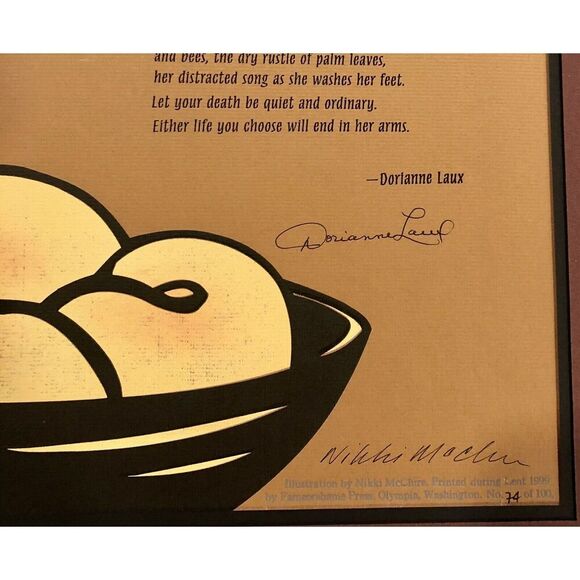 and bees, the dry rustle of palm leaves,
her distracted song as she washes her feet.
Let your death be quiet and ordinary.
Either life you choose will end in her arms.
—Dorianne Laux
Dorianne Laux
Nikki McClure
Illustration by Nikki McClure. Printed during Lent 1999
by Fameorshame Press, Olympia, Washington. No. 74 of 100.